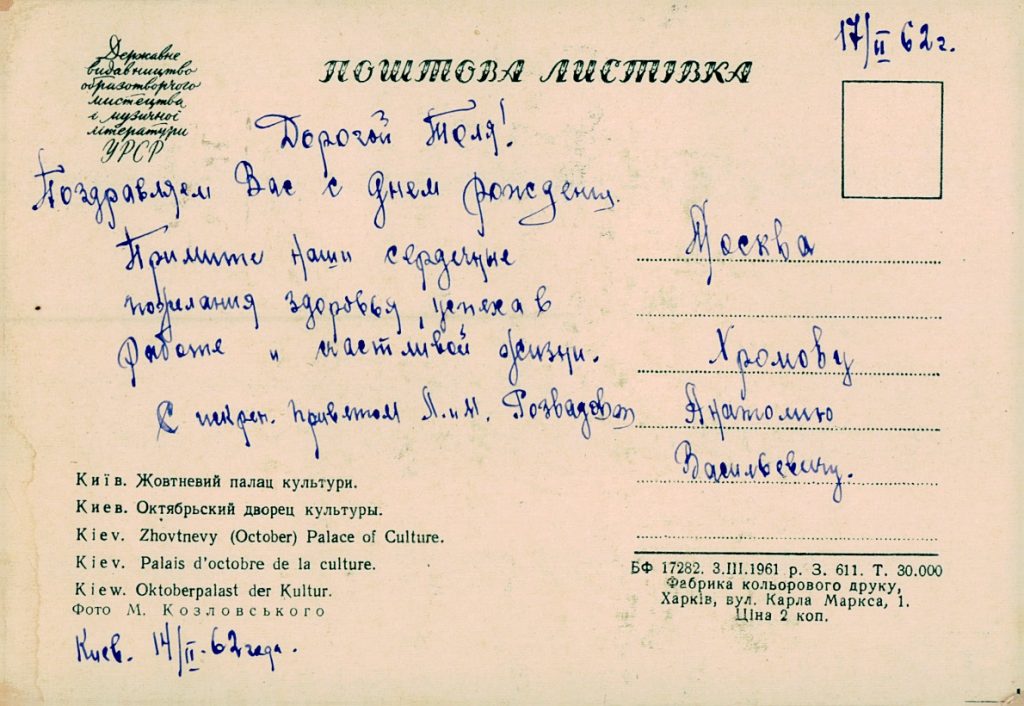 Державне
видавництво
образотворчого
мистецтва
і музичної
літератури
УРСР
ПОШТОВА ЛИСТІВКА
17/II 62 г.
Дорогой Толя!
Поздравляем Вас с днем рождения.
Примите наши сердечные
пожелания здоровья, успеха в
работе и счастливой жизни.
С искрен. приветом Л. и М.
Москва
Хромову
Анатолию
Васильевичу.
Київ. Жовтневий палац культури.
Киев. Октябрьский дворец культуры.
Kiev. Zhovtnevy (October) Palace of Culture.
Kiev. Palais d'octobre de la culture.
Kiew. Oktoberpalast der Kultur.
Фото М. Козловського
Киев. 14/II-62 года.
БФ 17282. 3.III.1961 р. З. 611. Т. 30.000
Фабрика кольорового друку,
Харків, вул. Карла Маркса, 1.
Ціна 2 коп.